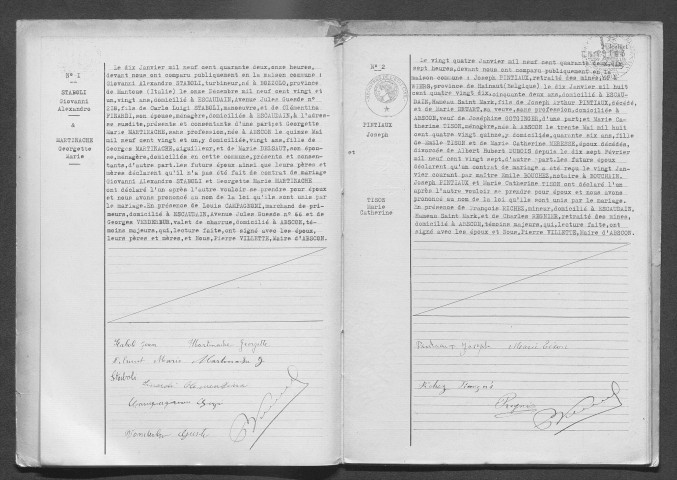 N° 1
STABOLI
Giovanni
Alexandro
&
MARTINACHE
Georgette
Marie
Le dix Janvier mil neuf cent quarante deux, onze heures,
devant nous ont comparu publiquement en la maison commune :
Giovanni Alexandro STABOLI, turbineur, né à province
de Mantoue (Italie) le onze Décembre mil neuf cent vingt et
un, vingt ans, domicilié à ESCAUDAIN, avenue Jules Guesde n°
fils de Carlo Luigi STABOLI, manoeuvre, et de Clémentina
son épouse, ménagère, domiciliés à ESCAUDAIN, à l'adres-
se susdite, présents et consentants d'une part; et Georgette
Marie MARTINACHE, sans profession, née à ABSCON le quinze Mai
mil neuf cent vingt et un, y domiciliée, vingt ans, fille de
Georges MARTINACHE, aiguilleur, et de Marie son épou-
se, ménagère, domiciliés en cette commune, présents et consen-
tants, d'autre part. Les futurs époux ainsi que leurs pères et
mères déclarent qu'il n'a pas été fait de contrat de mariage
Giovanni Alexandro STABOLI et Georgette Marie MARTINACHE
ont déclaré l'un après l'autre vouloir se prendre pour époux
et nous avons prononcé au nom de la loi qu'ils sont unis par
le mariage. En présence de Louis CAMPAGNONI, marchand de pri-
meurs, domicilié à ESCAUDAIN, Avenue Jules Guesde n° 66 et de
Georges valet de charrue, domicilié à ABSCON, té-
moins majeurs, qui, lecture faite, ont signé avec les époux,
leurs pères et mères, et Nous, Pierre VILLETTE, Maire d'ABSCON.
Martinache Georgette
Marie Martinache G
Staboli
N° 2
PINTIAUX
Joseph
et
TISON
Marie
Catherine
Le vingt quatre Janvier mil neuf cent quarante deux, dix
sept heures, devant nous ont comparu publiquement en la
maison commune : Joseph PINTIAUX, retraité des mines, né à
province de Hainaut (Belgique) le dix Janvier mil huit
cent quatre vingt dix, cinquante deux ans, domicilié à ESCAU-
DAIN, Hameau Saint Mark, fils de Joseph Arthur PINTIAUX, décédé,
et de Marie sans profession, domiciliée à ABSCON,
veuf de Joséphine d'une part; et Marie Ca-
therine TISON, ménagère, née à ABSCON le trente Mai mil huit
cent quatre vingt quinze, y domiciliée, quarante six ans, fille
de Emile TISON et de Marie Catherine époux décédés,
divorcée de Albert Hubert DUBOIS depuis le dix sept Février
mil neuf cent vingt sept, d'autre part. Les futurs époux
déclarent qu'un contrat de mariage a été reçu le vingt Jan-
vier courant par maître Emile BOUCHEZ, notaire à BOUCHAIN.
Joseph PINTIAUX et Marie Catherine TISON ont déclaré l'un
après l'autre vouloir se prendre pour époux et nous avons
prononcé au nom de la loi qu'ils sont unis par le mariage.
En présence de François mineur, domicilié à ESCAUDAIN,
Hameau Saint Mark, et de Charles REGNIER, retraité des mines,
domicilié à ABSCON, témoins majeurs, qui, lecture faite, ont
signé avec les époux et Nous, Pierre VILLETTE, Maire d'ABSCON.
Joseph